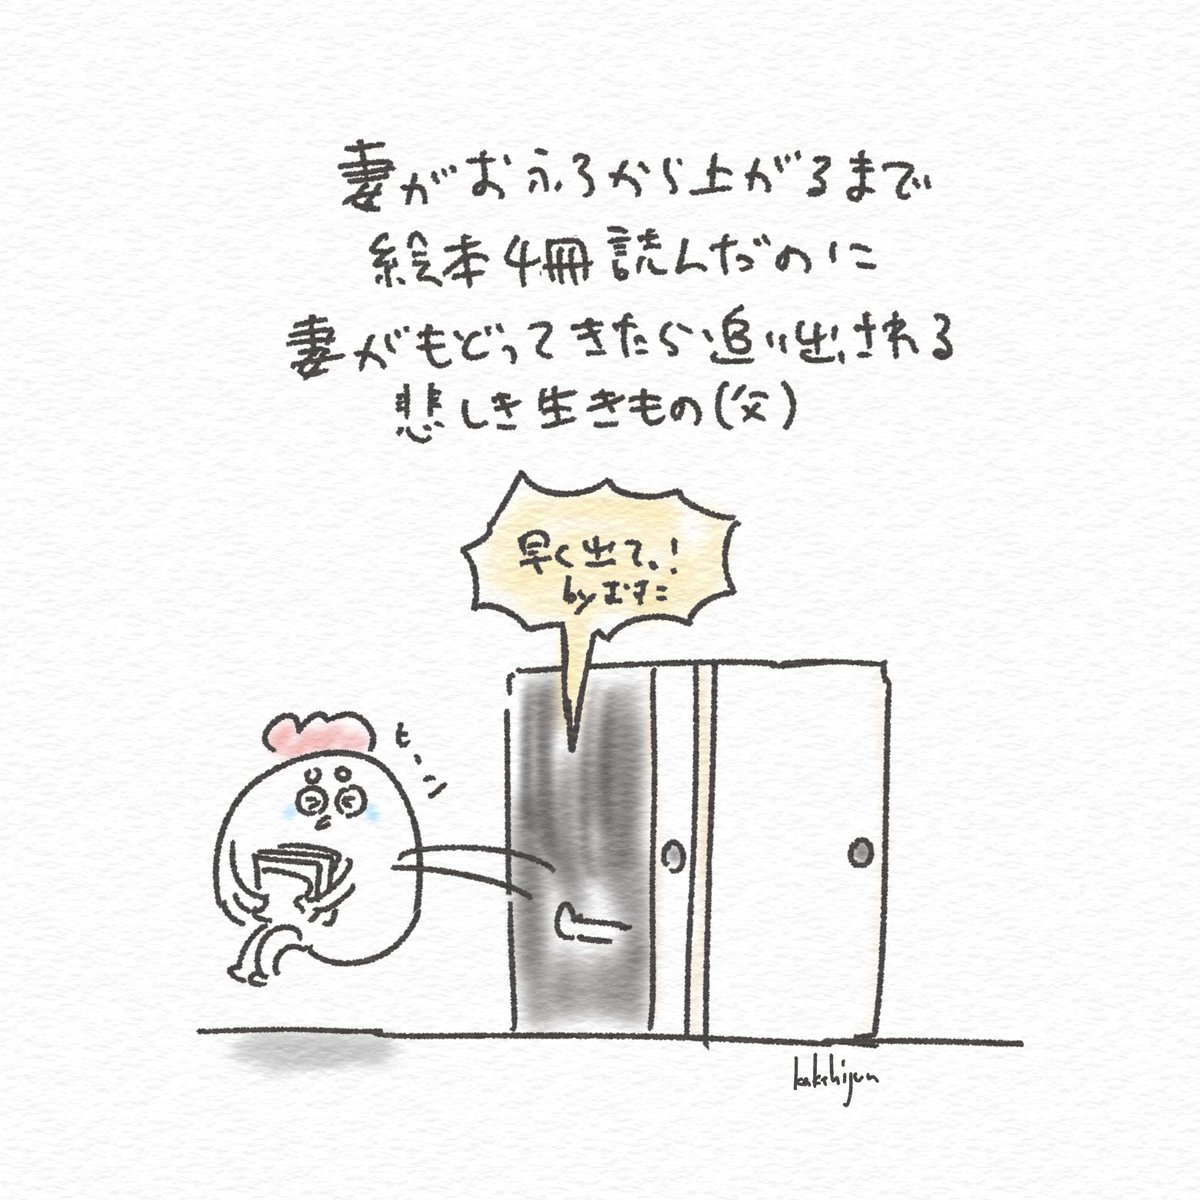 妻がおふろから上がるまで
絵本4冊読んだのに
妻がもどってきたら追い出される
悲しき生きもの(父)
早く出て、!
byむすこ
kakehijun